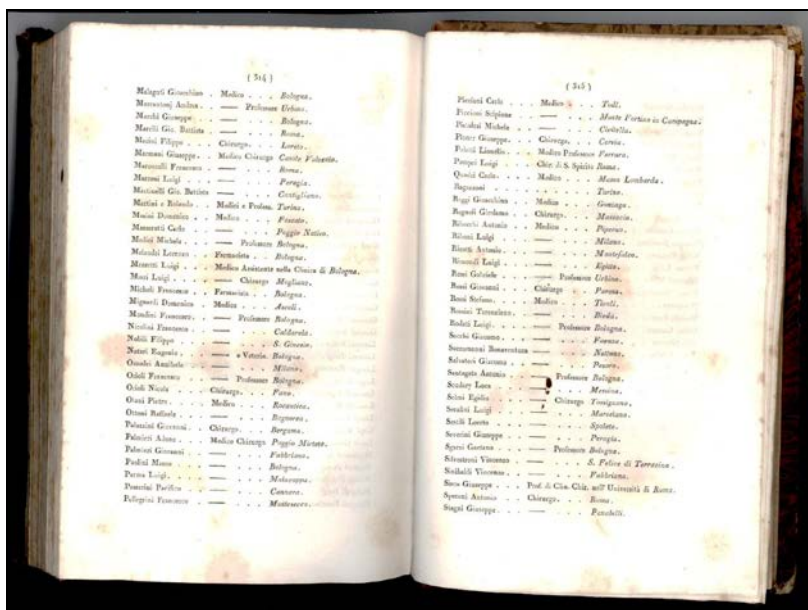 ( 314 )
Malagoti Gioacchino . Medico . . . Bologna.
Marcantonj Andrea . . — Professore Urbino.
Marchi Giuseppe . . . — . . . Bologna.
Marchi Gio. Battista . . — . . . Roma.
Marini Filippo . . . Chirurgo. . . Loreto.
Marmani Giuseppe. . Medico Chirurgo
Francesco . . — . . . Roma.
Martoni Luigi . . . — . . . Perugia.
Martinelli Gio. Battista — . . . Castigliano.
Martini e Rolando . . Medici e Profess. Torino.
Masini Domenico . . Medico . . .
Carlo . . — . . . Poggio Nativo.
Medici Michele . . . — Professore Bologna.
Melandri Lorenzo . . Farmacista . . Bologna.
Menetti Luigi . . . Medico Assistente nella Clinica di Bologna.
Luigi . . . — Chirurgo Magliano.
Micheli Francesco . . Farmacista . . Bologna.
Mignardi Domenico . Medico . . . Ascoli.
Mondini Francesco . . — Professore Bologna.
Nicolini Francesco . . — . . . Caldarola.
Nobili Filippo . . . — . . . S. Ginesio.
Notari Eugenio . . . — e Veterin. Bologna.
Omodei Annibale . . — . . . Milano.
Orioli Francesco . . — Professore Bologna.
Orioli Nicola . . . Chirurgo. . . Fano.
Ottani Pietro . . . Medico . . . Recantina.
Ottoni Raffaele . . . — . . . Bagnorea.
Palazzini Giovanni . . Chirurgo. . . Bergamo.
Palmieri Adone . . . Medico Chirurgo Poggio Mirteto.
Palmieri Giovanni . . — . . . Fabbriano.
Paolini Marco . . . — . . . Bologna.
Parma Luigi . . . — . . . Malacappa.
Pastorini Pacifico . . — . . . Cannara.
Pellegrini Francesco . — . . .
( 315 )
Piccinini Carlo . . . Medico . . . Todi.
Piccioni Scipione . . — . . . Monte Fortino in Campagna.
Piccolni Michele . . — . . . Civitella.
Ploner Giuseppe. . . Chirurgo. . . Cervia.
Poletti Lionello . . Medico Professore Ferrara.
Pompei Luigi . . . Chir. di S. Spirito Roma.
Quarici Carlo. . . . Medico . . . Massa Lombarda.
Ragazzoni . . . . — . . . Torino.
Raggi Gioacchino . . Medico . . . Gonzaga.
Regnoli Girolamo . . Chirurgo. . .
Ribecchi Antonio . . Medico . . . Piperno.
Riboni Luigi . . . — . . . Milano.
Rinotti Antonio . . . — . . . Montefalco.
Rinondi Luigi . . . — . . . Egitto.
Rossi Gabriele . . . — Professore Urbino.
Rossi Giovanni . . . Chirurgo . . . Parma.
Rossi Stefano. . . . Medico . . . Tivoli.
Rossini Terenziano . . — . . . Bieda.
Rodati Luigi. . . . — Professore Bologna.
Sacchi Giacomo . . . — . . . Faenza.
Bonaventura — . . . Nettuno.
Salvatori Giacomo . . — . . . Pesaro.
Santagata Antonio . . — Professore Bologna.
Scudery Luca . . . — . . . Messina.
Scini Egidio . . . — Chirurgo Tossignano.
Serafini Luigi . . . — . . . Marsciano.
Seroli Loreto . . . — . . . Spoleto.
Severini Giuseppe . . — . . . Perugia.
Sgarzi Gaetano . . . — Professore Bologna.
Silvestroni Vincenzo . — . . . S. Felice di Terracina.
Sinibaldi Vincenzo . . — . . . Fabbriano.
Sisco Giuseppe . . Prof. di Clin. Chir. nell' Università di Roma.
Speroni Antonio . . Chirurgo. . . Roma.
Stagni Giuseppe. . . — . . .